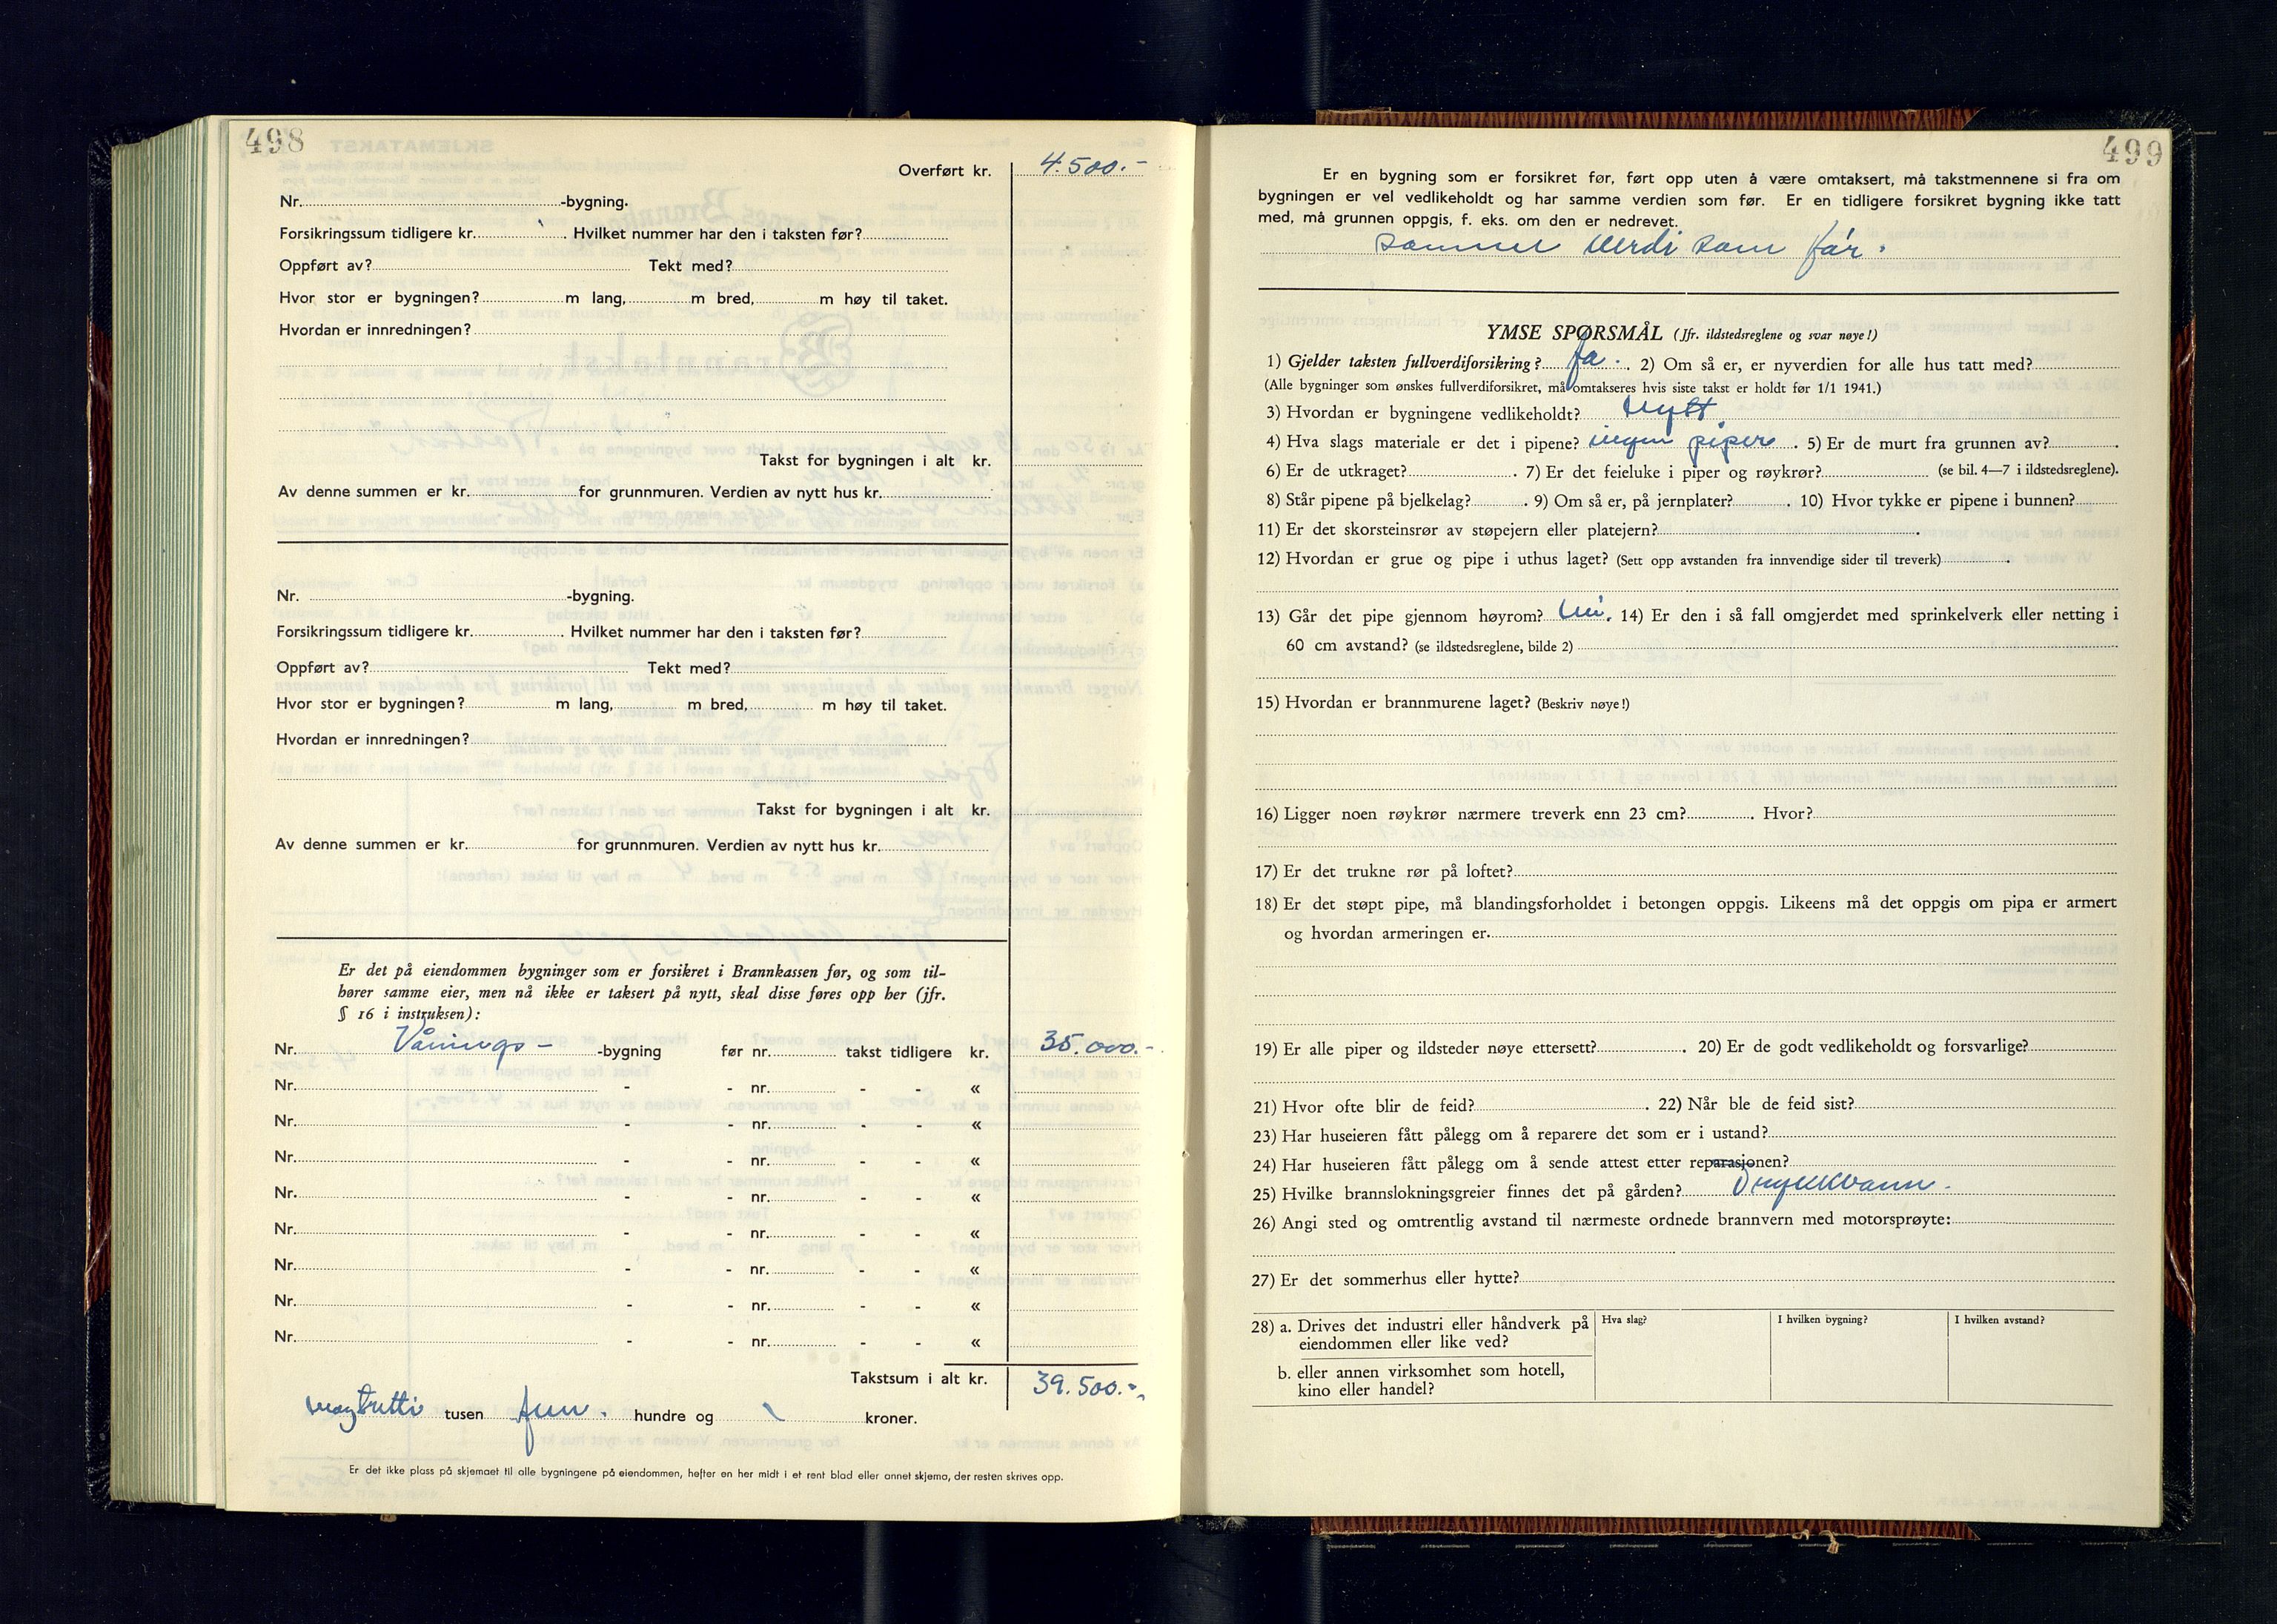 498
Overført kr. 4.500.-
Nr. -bygning.
Forsikringssum tidligere kr. . Hvilket nummer har den i taksten før?
Oppført av? Tekt med?
Hvor stor er bygningen? m lang, m bred, m høy til taket.
Hvordan er innredningen?
Takst for bygningen i alt kr.
Av denne summen er kr. for grunnmuren. Verdien av nytt hus kr.
Nr. -bygning.
Forsikringssum tidligere kr. . Hvilket nummer har den i taksten før?
Oppført av? Tekt med?
Hvor stor er bygningen? m lang, m bred, m høy til taket.
Hvordan er innredningen?
Takst for bygningen i alt kr.
Av denne summen er kr. for grunnmuren. Verdien av nytt hus kr.
Er det på eiendommen bygninger som er forsikret i Brannkassen før, og som til-
hører samme eier, men nå ikke er taksert på nytt, skal disse føres opp her (jfr.
§ 16 i instruksen):
Nr. Vånings- -bygning før nr. takst tidligere kr. 35.000.-
Nr. - - nr. - - «
Nr. - - nr. - - «
Nr. - - nr. - - «
Nr. - - nr. - - «
Nr. - - nr. - - «
Nr. - - nr. - - «
Nr. - - nr. - - «
Nr. - - nr. - - «
Takstsum i alt kr. 39.500.-
tusen fem. hundre og kroner.
Er det ikke plass på skjemaet til alle bygningene på eiendommen, hefter en her midt i et rent blad eller annet skjema, der resten skrives opp.
499
Er en bygning som er forsikret før, ført opp uten å være omtaksert, må takstmennene si fra om
bygningen er vel vedlikeholdt og har samme verdien som før. Er en tidligere forsikret bygning ikke tatt
med, må grunnen oppgis, f. eks. om den er nedrevet.
samme verdi som før.
YMSE SPØRSMÅL (Jfr. ildstedsreglene og svar nøye!)
1) Gjelder taksten fullverdiforsikring? Ja. . 2) Om så er, er nyverdien for alle hus tatt med?
(Alle bygninger som ønskes fullverdiforsikret, må omtakseres hvis siste takst er holdt før 1/1 1941.)
3) Hvordan er bygningene vedlikeholdt? nytt
4) Hva slags materiale er det i pipene? ingen piper . 5) Er de murt fra grunnen av? .
6) Er de utkraget? . 7) Er det feieluke i piper og røykrør? (se bil. 4—7 i ildstedsreglene).
8) Står pipene på bjelkelag? . 9) Om så er, på jernplater? . 10) Hvor tykke er pipene i bunnen?
11) Er det skorsteinsrør av støpejern eller platejern? .
12) Hvordan er grue og pipe i uthus laget? (Sett opp avstanden fra innvendige sider til treverk) .
13) Går det pipe gjennom høyrom? nei. 14) Er den i så fall omgjerdet med sprinkelverk eller netting i
60 cm avstand? (se ildstedsreglene, bilde 2)
15) Hvordan er brannmurene laget? (Beskriv nøye!)
16) Ligger noen røykrør nærmere treverk enn 23 cm? . Hvor?
17) Er det trukne rør på loftet?
18) Er det støpt pipe, må blandingsforholdet i betongen oppgis. Likeens må det oppgis om pipa er armert
og hvordan armeringen er.
19) Er alle piper og ildsteder nøye ettersett? . 20) Er de godt vedlikeholdt og forsvarlige?
21) Hvor ofte blir de feid? . 22) Når ble de feid sist?
23) Har huseieren fått pålegg om å reparere det som er i ustand?
24) Har huseieren fått pålegg om å sende attest etter reparasjonen?
25) Hvilke brannslokningsgreier finnes det på gården?
26) Angi sted og omtrentlig avstand til nærmeste ordnede brannvern med motorsprøyte:
27) Er det sommerhus eller hytte?
28) a. Drives det industri eller håndverk på
eiendommen eller like ved?
b. eller annen virksomhet som hotell,
kino eller handel?
Hva slag?
I hvilken bygning?
I hvilken avstand?